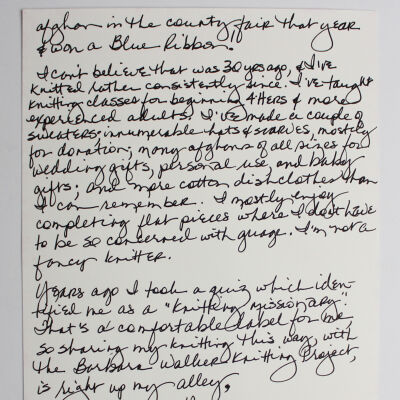 afghan in the county fair that year
& won a Blue Ribbon!!
I can't believe that was 30 yrs ago, & I've
knitted rather consistently since. I've taught
knitting classes for beginning 4Hers & more
experienced adults. I've made a couple of
sweaters; innumerable hats & scarves, mostly
for donation; many afghans of all sizes for
wedding gifts, personal use, and baby
gifts; and more cotton dishclothes than
I can remember. I mostly enjoy
completing flat pieces where I don't have
to be so concerned with guage. I'm not a
fancy knitter.
Years ago I took a quiz which iden-
tified me as a "Knitting Missionary".
That's a comfortable label for me
so sharing my knitting this way, with
the Barbara Walker Knitting Project,
is right up my alley,